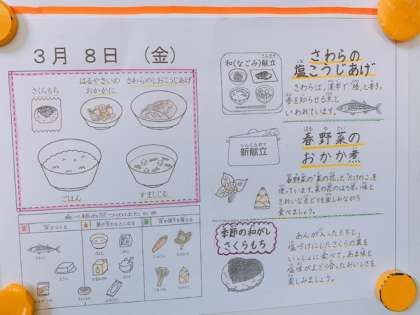 3月 8日 (金)
さくらもち
はるやさいの
おかかに
さわらのしおこうじあげ
ごはん
すましじる
和(なごみ)献立
さわらの
塩こうじあげ
さわらは、漢字で「鰆」と書き、
春を知らせる魚と
いわれています。
新献立
春野菜の
おかか煮
春野菜の「菜の花」と「たけのこ」を
使っています。菜の花のほろ苦い味と
きれいな色どりを楽しみながら
食べましょう。
季節の和がし
さくらもち
あんが入ったもちと、
塩づけにしたさくらの葉を
いっしょに食べて、あま味と
塩味がまざり合ったおいしさを
楽しみましょう。